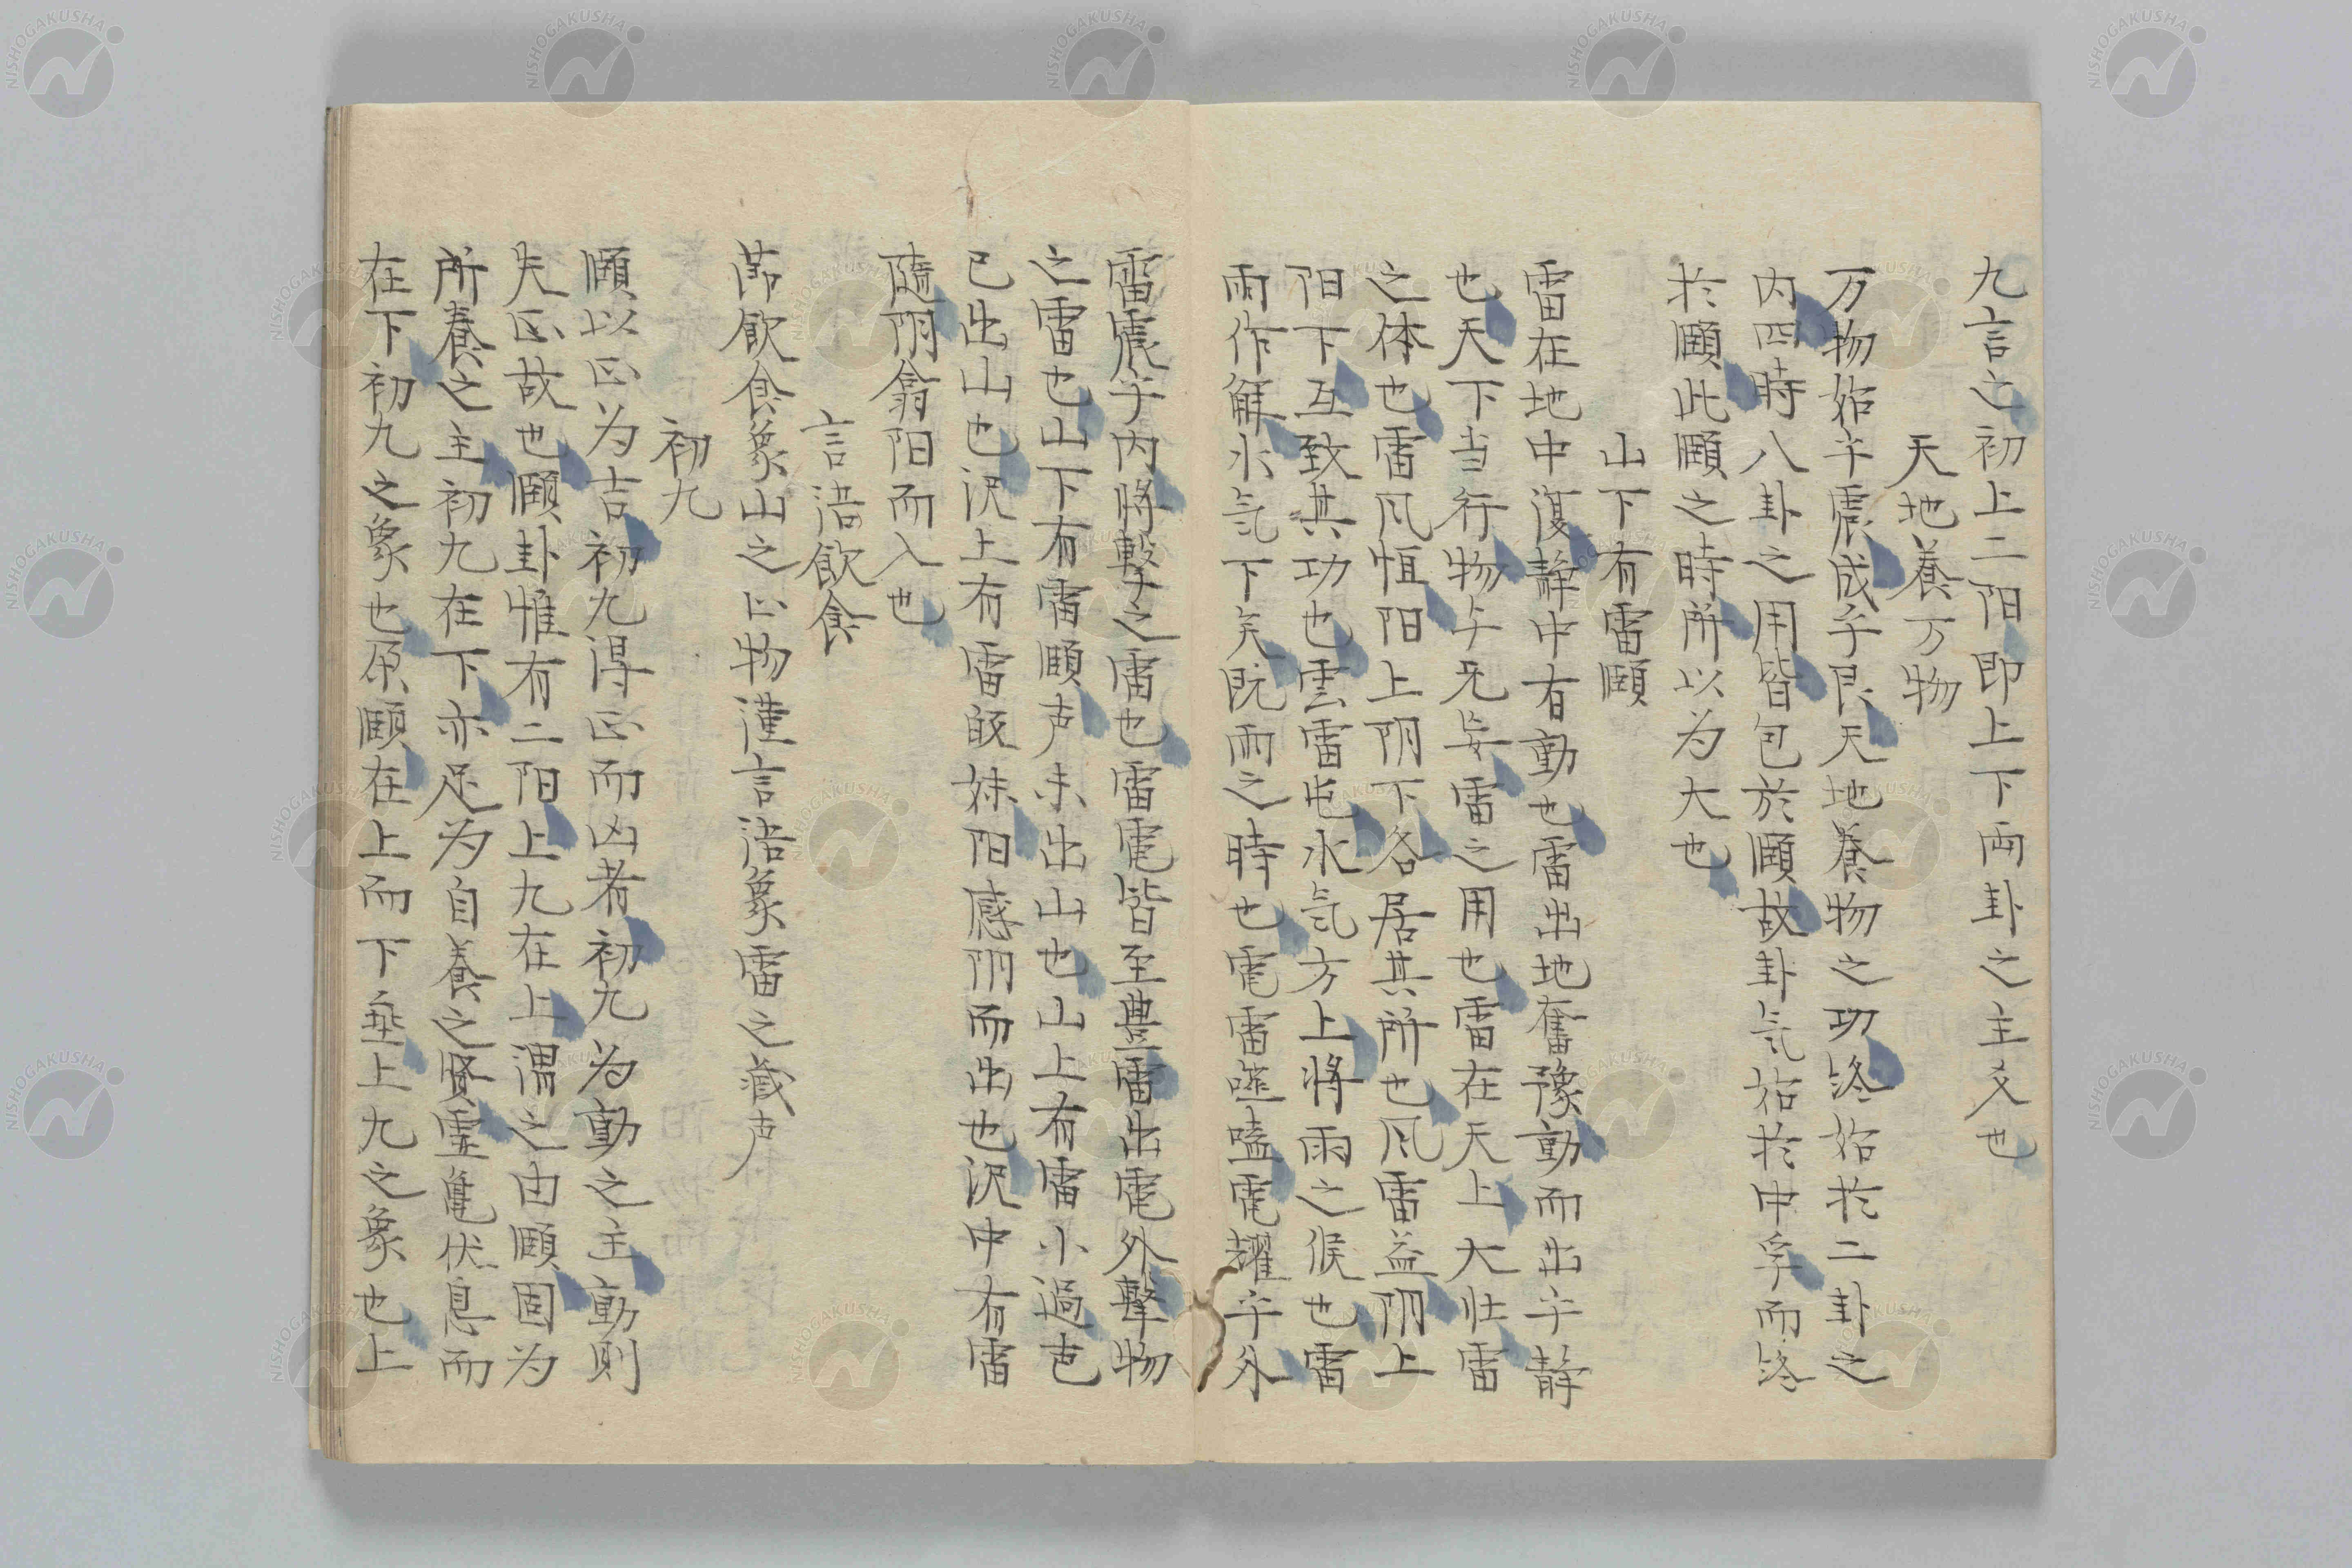 九言之初上二阳即上下两卦之主爻也
天地養万物
万物始乎震成乎艮天地養物之功終始於二卦之
内四時八卦之用皆包於頤故卦氣始於中孚而終
於頤此頤之時所以为大也
山下有雷頤
雷在地中復静中有動也雷出地奮豫動而出乎静
也天下当行物与无妄雷之用也雷在天上大壮雷
之体也雷凨恒阳上阴下各居其所也凨雷益阴上
阳下互致其功也雲雷屯水氣方上將雨之候也雷
雨作解水氣下矣既雨之時也電雷噬嗑電耀乎外
雷震乎内將擊之雷也雷電皆至豊雷出電外擊物
之雷也山下有雷頤声未出山也山上有雷小過声
已出山也沢上有雷皈妹阳感阴而出也沢中有雷
隨阴翕阳而入也
言语飲食
節飲食象山之止物謹言语象雷之蔵声
初九
頤以正为吉初九得正而凶者初九为動之主動則
失正故也頤卦惟有二阳上九在上謂之由頤固为
所養之主初九在下亦足为自養之賢霊亀伏息而
在下初九之象也原頤在上而下垂上九之象也上
NISHOGAKUSHA